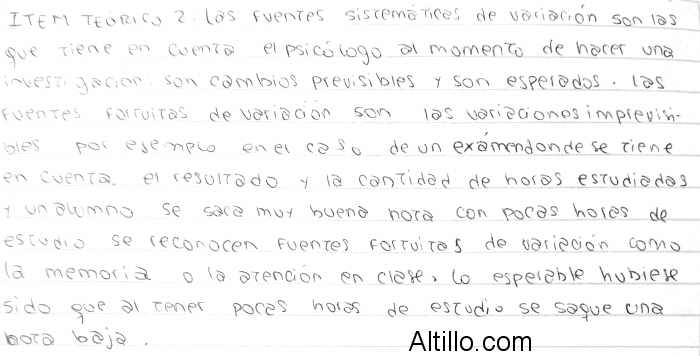 ITEM TEÓRICO 2. Las fuentes sistemáticas de variación son las
que tiene en cuenta el psicólogo al momento de hacer una
investigación. son cambios previsibles y son esperados. las
fuentes fortuitas de variación son las variaciones imprevisi-
bles por ejemplo en el caso de un exámen donde se tiene
en cuenta. el resultado y la cantidad de horas estudiadas
y un alumno se saca muy buena nota con pocas horas de
estudio se reconocen fuentes fortuitas de variación como
la memoria o la atención en clase, lo esperable hubiese
sido que al tener pocas horas de estudio se saque una
nota baja.
Altillo.com